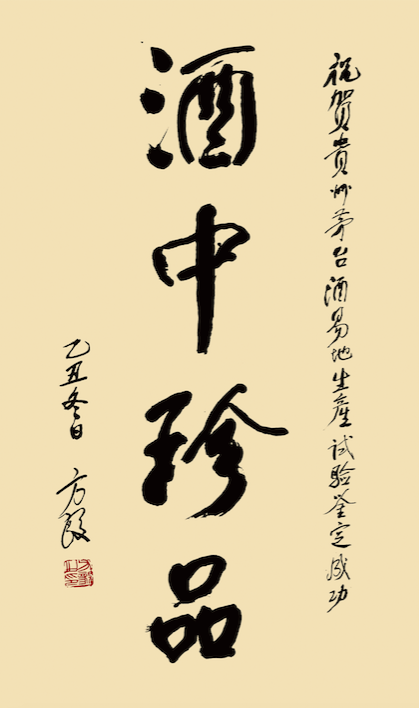 祝賀貴州茅台酒易地生產試验鉴定成功
酒中珍品
乙丑冬日 方毅